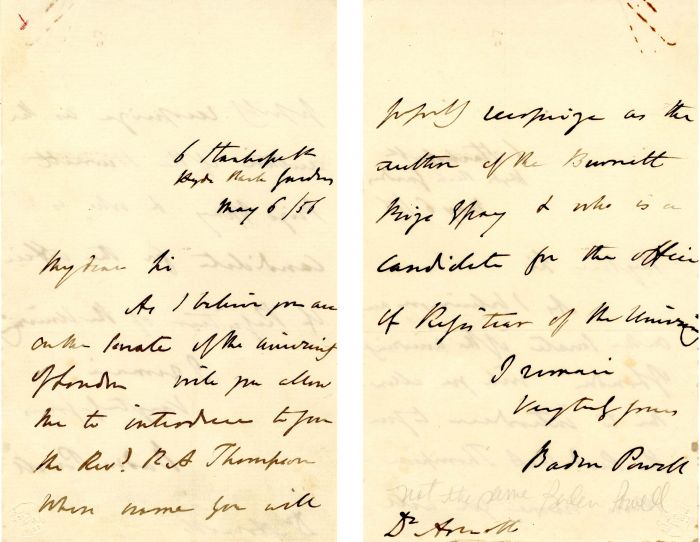 6 Stanhope St
Hyde Park Gardens
May 6/56
My dear Sir
As I believe you are
on the Senate of the University
of London will you allow
me to introduce to you
the Revd. R A Thompson
whose name you will
recognize as the
author of the Burnett
Prize Essay & who is a
candidate for the office
of Registrar of the University
I remain
Very truly yours
Baden Powell
not the same Baden Powell
Dr Arnott